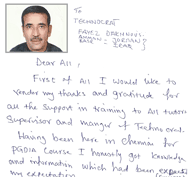 To
TECHNOCRAT
FAYEZ
AMMAN - JORDAN
Dear All,
First of All I would like to
render my thanks and gratitude for
all the support in training to All tutors
Supervisor and manger of Technocrat.
Having been here in Chennai for
PGDIA Course I honestly got knowledge
and information which had been
my expectation